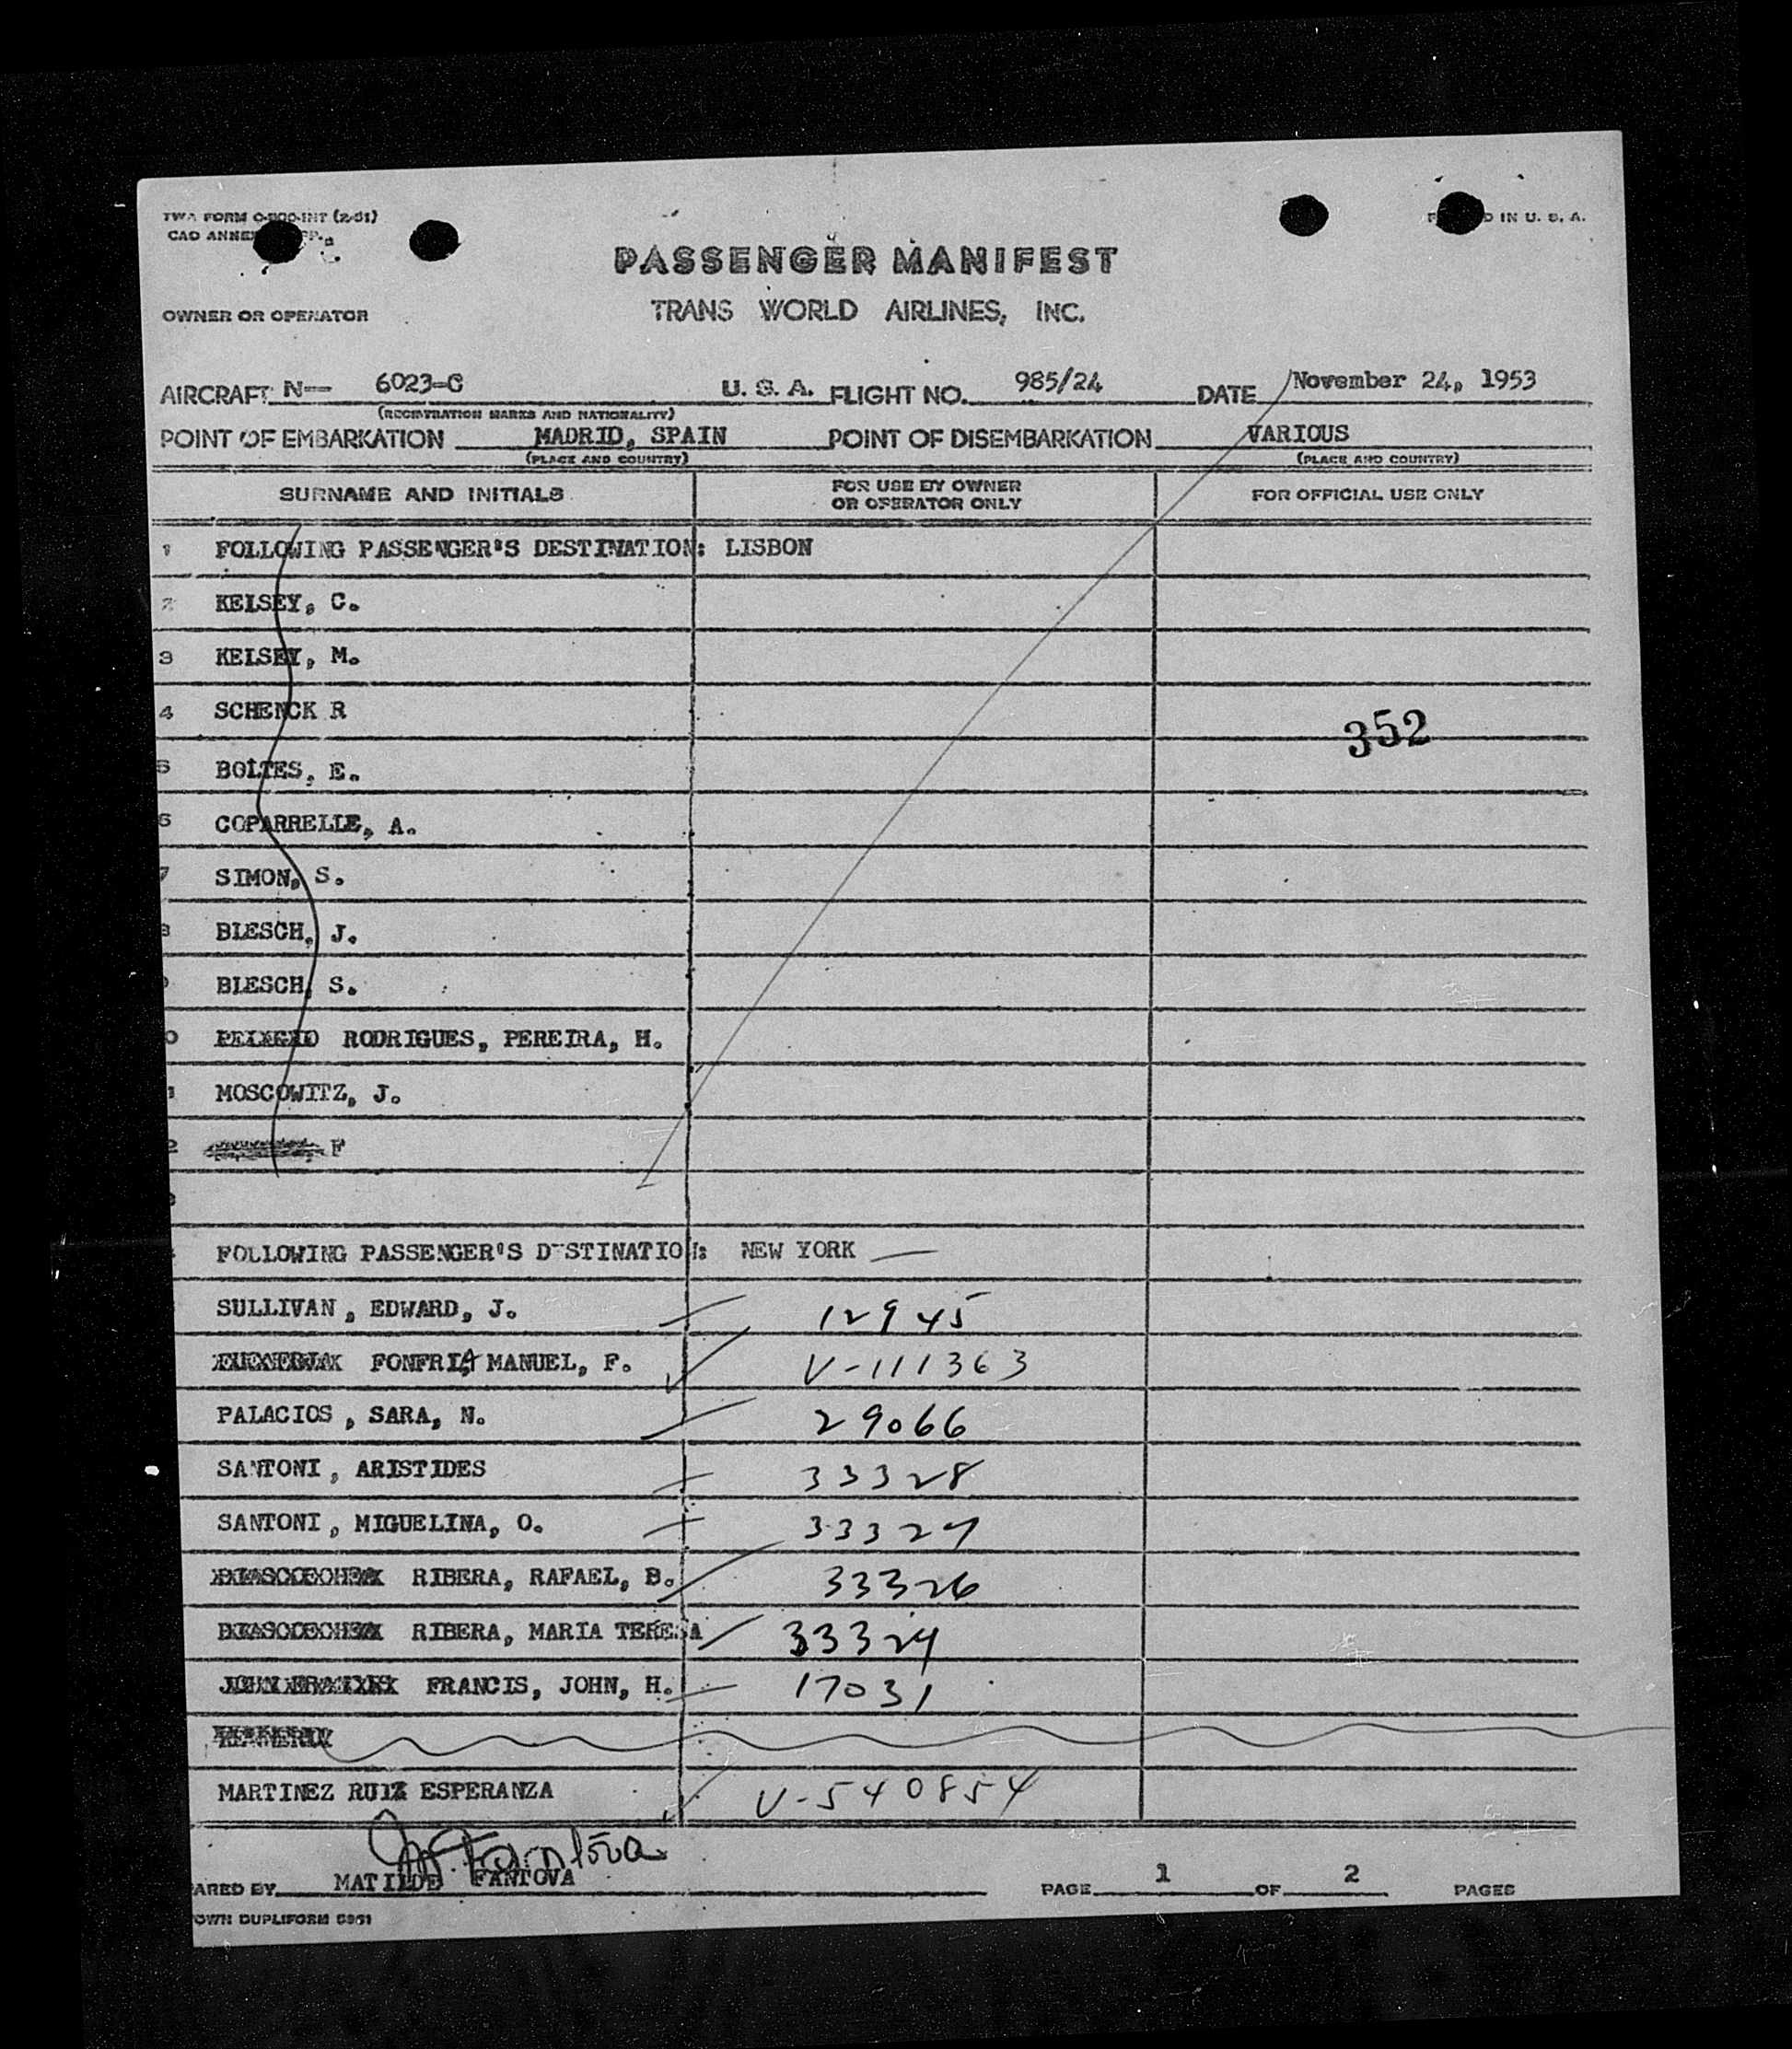 TWA FORM
CAO
D IN U. S. A.
PASSENGER MANIFEST
OWNER OR OPERATOR
TRANS WORLD AIRLINES, INC.
AIRCRAFT N-- 6023-C U. S. A. FLIGHT NO. 985/24 DATE November 24, 1953
(REGISTRATION MARKS AND NATIONALITY)
POINT OF EMBARKATION MADRID, SPAIN POINT OF DISEMBARKATION VARIOUS
(PLACE AND COUNTRY) (PLACE AND COUNTRY)
SURNAME AND INITIALS FOR USE BY OWNER OR OPERATOR ONLY FOR OFFICIAL USE ONLY
1 FOLLOWING PASSENGER'S DESTINATION: LISBON
2 KELSEY, C.
3 KELSEY, M.
4 SCHENCK R
352
5 BOLTES, E.
6 COPARRELLE, A.
7 SIMON, S.
8 BLESCH, J.
BLESCH, S.
0 RODRIGUES, PEREIRA, H.
1 MOSCOWITZ, J.
2 F
FOLLOWING PASSENGER'S DESTINATION: NEW YORK
SULLIVAN, EDWARD, J. 12945
FONFRIA MANUEL, F. V-111363
PALACIOS, SARA, N. 29066
SANTONI, ARISTIDES 33328
SANTONI, MIGUELINA, O. 33327
RIBERA, RAFAEL, B. 33326
RIBERA, MARIA TERESA 33324
FRANCIS, JOHN, H. 17031
MARTINEZ RUIZ ESPERANZA V-540854
M. Fantova
ARED BY MATILDE FANTOVA PAGE 1 OF 2 PAGES
OWN DUPLIFORM